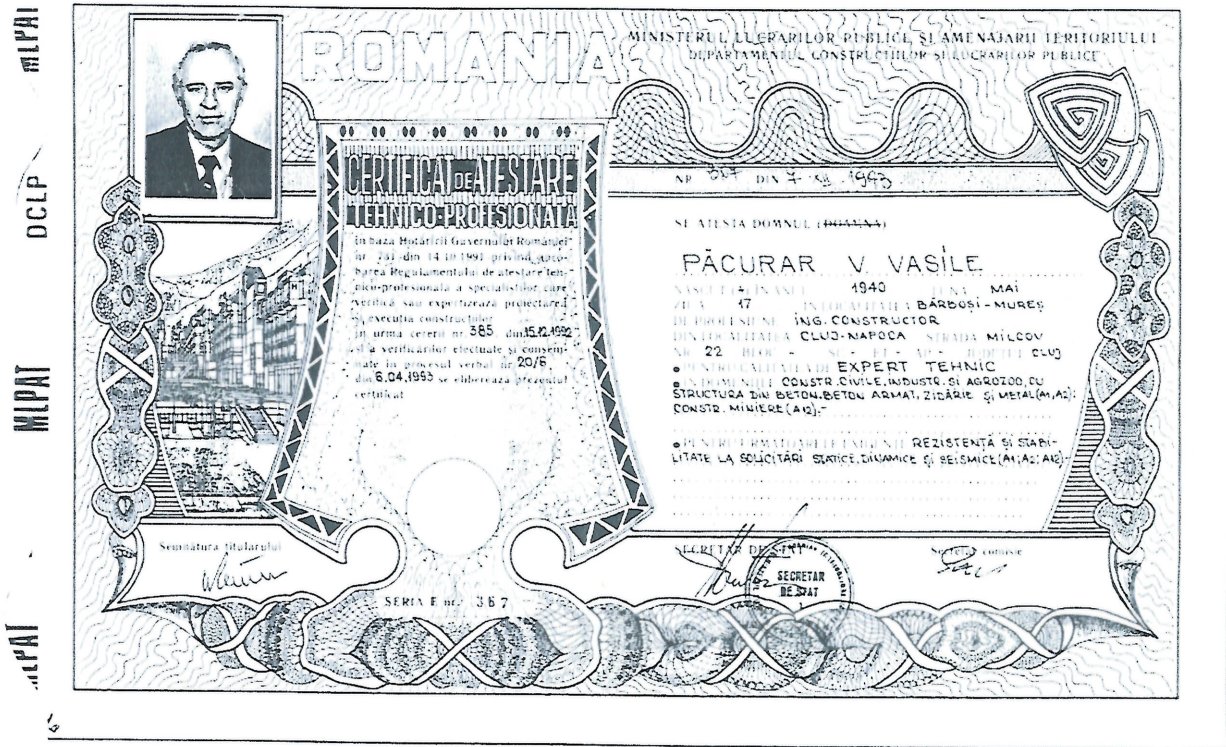 MLPAT
DCLP
MLPAT
MLPAT
ROMANIA
MINISTERUL LUCRARILOR PUBLICE SI AMENAJARII TERITORIULUI
DEPARTAMENTUL CONSTRUCTIILOR SI LUCRARILOR PUBLICE
CERTIFICAT DE ATESTARE
TEHNICO-PROFESIONALA
In baza Hotărîrii Guvernului României
nr. 731 din 14.10.1991 privind apro-
barea Regulamentului de atestare teh-
nico-profesionala a specialistilor care
verifică sau expertizează proiectarea
și execuția construcțiilor
In urma cererii nr. 385 din 15.12.1992
si a verificărilor efectuate și consem-
nate în procesul verbal nr. 20/6
din 6.04.1993 se eliberează prezentul
certificat
NR. 367 DIN 7 XII 1993
SE ATESTA DOMNUL (DOAMNA)
PĂCURAR V. VASILE
NASCUT(A) IN ANUL 1940 LUNA MAI
ZIUA 17 IN LOCALITATEA BĂRBOȘI-MUREȘ
DE PROFESIUNE ING. CONSTRUCTOR
DIN LOCALITATEA CLUJ-NAPOCA STRADA MILCOV
NR. 22 BLOC - SC - ET - AP - JUDETUL CLUJ
● PENTRU CALITATEA DE EXPERT TEHNIC
● IN DOMENIILE CONSTR. CIVILE, INDUSTR. SI AGROZOO, CU
STRUCTURA DIN BETON, BETON ARMAT, ZIDĂRIE ȘI METAL (A1, A2);
CONSTR. MINIERE (A12).-
● PENTRU URMATOARELE EXIGENTE REZISTENTĂ ȘI STABI-
LITATE LA SOLICITĂRI STATICE, DINAMICE ȘI SEISMICE (A1; A2; A12)-
Semnătura titularului
SECRETAR DE STAT
Secretar comisie
SECRETAR
DE STAT
SERIA E nr. 367